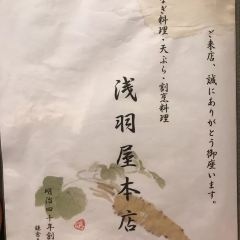 ご来店、誠にありがとう御座います。
なぎ料理・天ぷら・割烹料理
浅羽屋本店
明治四十年創
鎌倉